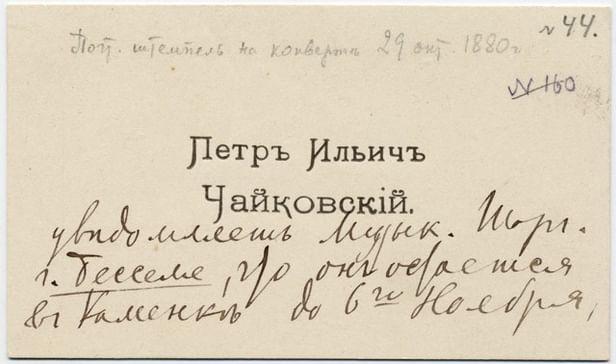 № 44.
Почт. штемпель на конвертѣ 29 окт. 1880 г
№ 160
Петръ Ильичъ
Чайковскій.
увѣдомляетъ Музык. Торг.
г. Бесселя, что онъ остается
въ Каменкѣ до 6го Ноября,